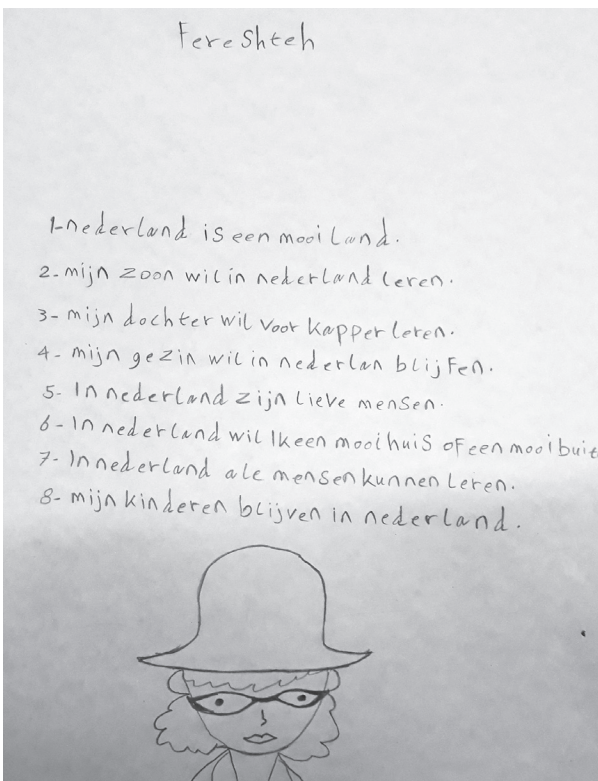 Fereshteh
1-nederland is een mooi land.
2- mijn zoon wil in nederland leren.
3- mijn dochter wil voor kapper leren.
4- mijn gezin wil in nederlan blijfen.
5- In nederland zijn lieve mensen.
6- In nederland wil Ik een mooi huis of een mooi buit
7- In nederland ale mensen kunnen leren.
8- mijn kinderen blijven in nederland.